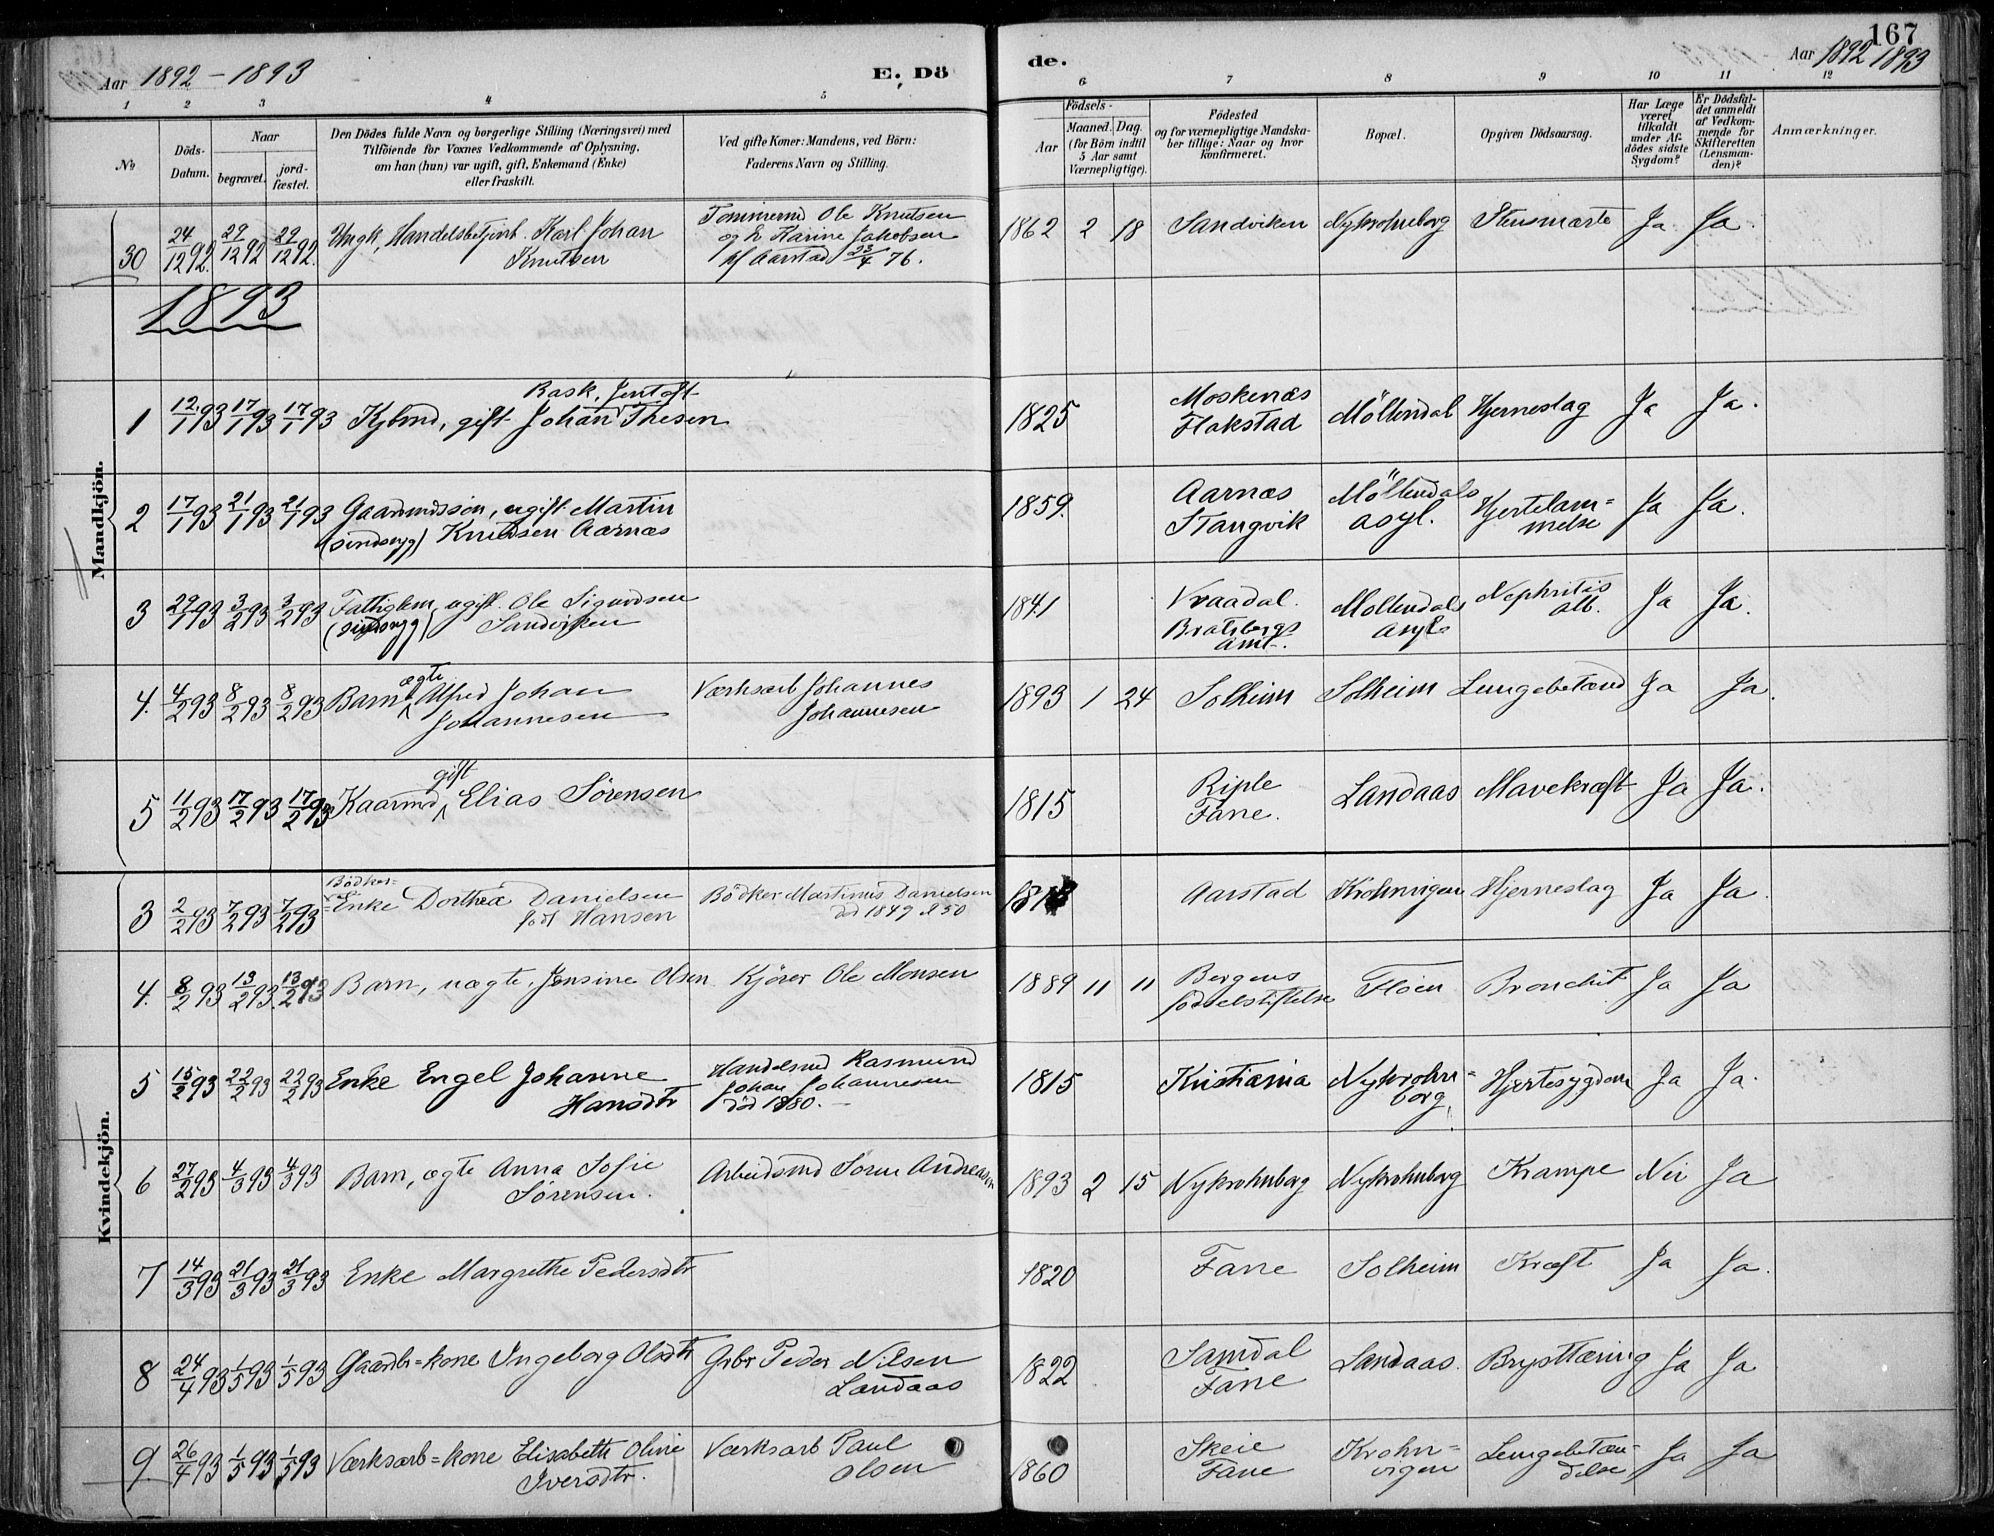 167
Aar 1892-1893
E. Dö
de.
Aar 1892 1893
1 2 3 4 5 6 7 8 9 10 11 12
No
Döds-Datum.
Naar
begravet.
jord-fæstet.
Den Dödes fulde Navn og borgerlige Stilling (Næringsvei) med
Tilföiende for Voxnes Vedkommende af Oplysning,
om han (hun) var ugift, gift, Enkemand (Enke)
eller fraskilt.
Ved gifte Koner: Mandens, ved Börn:
Faderens Navn og Stilling.
Födsels-
Aar
Maaned. Dag.
(for Börn indtil
5 Aar samt
Værnepligtige).
Födested
og for værnepligtige Mandska-
ber tillige: Naar og hvor
konfirmeret.
Bopæl.
Opgiven Dödsaarsag.
Har Læge
været
tilkaldt
under Af-
dödes sidste
Sygdom?
Er Dödsfal-
det anmeldt
af Vedkom-
mende for
Skifteretten
(Lensman-
den)?
Anmærkninger.
Mandkjön.
30 24/12 92 29/12 92 29/12 92 Ungk, Handelsbetjent Karl Johan Knutsen Tømmermd Ole Knutsen og h. Karine Jakobsen kf Aarstad 23/4 76. 1862 2 18 Sandviken Nykrohneborg Stensmærte Ja Ja.
1893
1 12/1 93 17/1 93 17/1 93 Kjbmd, gift Johan Bask. Jentoft Thesen 1825 Moskenæs Flakstad Möllendal Hjerneslag Ja Ja.
2 17/1 93 21/1 93 21/1 93 Gaarmdssøn, ugift Martin (sindssyg) Knudsen Aarnæs 1859. Aarnæs Stangvik Möllendals asyl. Hjertelam=melse Ja Ja.
3 29/1 93 3/2 93 3/2 93 Fattiglem, ugift. Ole Sigurdsen (sindssyg) Sandviken 1841 Vraadal. Bratsbergs amt. Møllendals asyl Nephritis alb. Ja Ja.
4. 4/2 93 8/2 93 8/2 93 Barn ægte Alfred Johan Johannesen Værksarb Johannes Johannesen 1893 1 24 Solheim Solheim Lungebetænd Ja Ja.
5 11/2 93 17/2 93 17/2 93 Kaarmd gift Elias Sörensen 1815 Riple Fane. Landaas Mavekræft Ja Ja.
Kvindekjön.
3 2/2 93 7/2 93 7/2 93 Bödker=Enke Dorthea Danielsen født Hansen Bödker Martinus Danielsen død 1849 el 50 Aarstad Krohnvigen Hjerneslag Ja Ja
4. 8/2 93 13/2 93. 13/2 93 Barn, uægte, Jensine Olsen Kjører Ole Monsen 1889 11 11 Bergens fødselsstiftelse Fløen Bronchit Ja Ja
5 15/2 93 22/2 93 22/2 93 Enke Engel Johanne Hansdtr Handelsmd Rasmund Johan Johannesen død 1880. - 1815 Kristiania Nykrohn=borg Hjertesygdom Ja Ja.
6 27/2 93 4/3 93 4/3 93 Barn, ægte Anna Sofie Sørensen. Arbeidsmd Søren Andreasen 1893 2 15 Nykrohnborg Nykrohnborg Krampe Nei Ja
7 14/3 93 21/3 93 21/3 93 Enke Margrethe Pedersdtr 1820 Fane Solheim Kræft Ja Ja.
8 24/4 93 1/5 93 1/5 93 Gaardbr=kone Ingeborg Olsdtr Grbr Peder Nilsen Landaas 1822 Samdal Fane Landaas. Brysttæring Ja Ja
9. 26/4 93 1/5 93 1/5 93 Værksarb=kone Elisabeth Oline Iversdtr. Værksarb Paul Olsen 1860 Skeie Fane Krohn=vigen Lungebetæn=delse Ja Ja